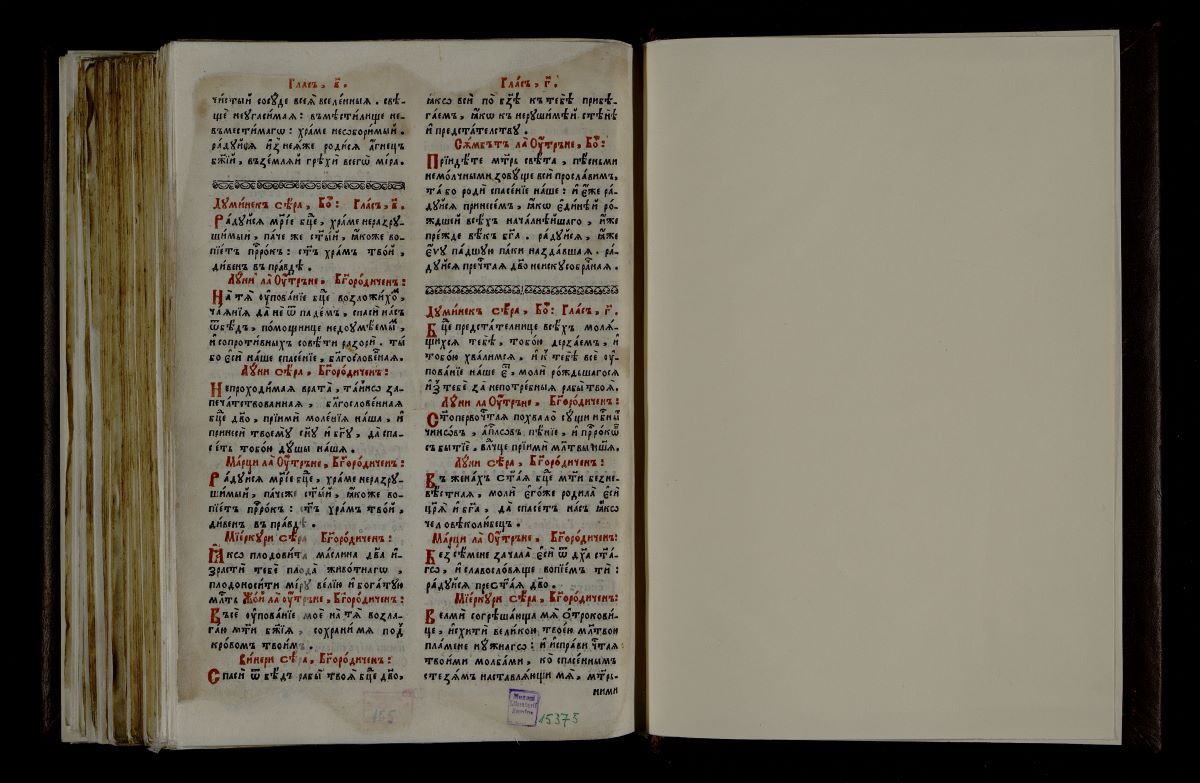 Гласъ, в҃.
чи́стый сосꙋ́де всеѧ̀ вселе́нныѧ. свѣ-
щѐ неꙋгаси́маѧ: въмѣсти́лище не-
въмести́магѡ: хра́ме несѡбори́мый.
ра́дꙋйсѧ и҆з̾ неѧ́же роди́сѧ а҆́гнецъ
бж҃їй, възе́млѧй грѣхѝ всегѡ̀ мі́ра.
Дꙋми́некъ сѣ́ра, Бо҃г: Гла́съ, в҃.
Ра́дꙋйсѧ мр҃і́е бц҃е, хра́ме неразрꙋ-
ши́мый, па́че же ст҃ы́й, ꙗ҆́коже во-
пїе́тъ прⷪ҇ро́къ: ст҃ъ хра́мъ тво́й,
ди́венъ въ пра́вдѣ.
Лꙋ́ни ла Оу҆́тръне, Бг҃оро́диченъ:
На тѧ̀ оу҆пова́нїе бц҃е возложи́хѡⷨ,
ча́ѧнїѧ да не ѿ паде́мъ, спасѝ на́съ
ѿ бѣ́дъ, помо́щнице недоꙋмѣ́емыⷨ,
и҆ сопроти́вныхъ совѣ́ти разорѝ. ты́
бо є҆сѝ на́ше спасе́нїе, блг҃ослове́ннаѧ.
Лꙋ́ни сѣ́ра, Бг҃оро́диченъ:
Непроходи́маѧ врата̀, та́йнѡ за-
печа́тствованнаѧ, блг҃ослове́ннаѧ
бц҃е дв҃о, прїимѝ моле́нїѧ на́ша, и҆
принесѝ твоемꙋ̀ сн҃ꙋ и҆ бг҃ꙋ, да̀ спа-
се́тъ тобо́ю дꙋ́шы на́шѧ.
Ма́рци ла Оу҆́тръне, Бг҃оро́диченъ:
Ра́дꙋйсѧ мр҃і́е бц҃е, хра́ме неразрꙋ-
ши́мый, па́чеже ст҃ы́й, ꙗ҆́коже во-
пїе́тъ прⷪ҇ро́къ: ст҃ъ хра́мъ тво́й,
ди́венъ въ пра́вдѣ.
Мїе́ркꙋри сѣ́ра Бг҃оро́диченъ:
Ꙗ҆́кѡ плодови́та ма́слина дв҃а и҆-
зрастѝ тебѐ плода̀ живо́тнагѡ,
плодоноси́ти мі́рꙋ ве́лїю и҆ бога́тꙋю
мл҃ть Жо́й ла оу҆́тръне, Бг҃оро́диченъ:
Въсѐ оу҆пова́нїе моѐ на тѧ̀ возла-
га́ю мт҃и бж҃їѧ, сохрани́ мѧ под̾
кро́вомъ твои́мъ.
Ви́нери сѣ́ра, Бг҃оро́диченъ:
Спасѝ ѿ бѣ́дъ рабы̀ твоѧ̀ бц҃е дв҃о,
Гла́съ, г҃.
ꙗ҆́кѡ всѝ по бз҃ѣ къ тебѣ̀ прибѣ-
га́емъ, ꙗ҆́кѡ къ нерꙋши́мѣй стѣ́нѣ
и҆ предста́телствꙋ.
Сѫ́мбътъ ла Оу҆́тръне, Бо҃г:
Прїиди́те мт҃рь свѣ́та, пѣ́сньми
немо́лчными зовꙋ́ще всѝ просла́вимъ,
та́ бо родѝ спасе́нїе на́ше: и҆ є҆́йже ра́-
дꙋйсѧ принесе́мъ, ꙗ҆́кѡ є҆ди́нѣй ро́-
ждшей всѣ́хъ нача́лнѣйшаго, и҆́же
пре́жде вѣ́къ бг҃а. ра́дꙋйсѧ, ꙗ҆́же
є҆́ѵꙋ па́дшꙋю па́ки назда́вшаѧ. ра́-
дꙋйсѧ пречⷭ҇таѧ дв҃о неискꙋсобра́чнаѧ.
Дꙋми́некъ сѣ́ра, Бо҃г: Гла́съ, г҃.
Бц҃е предста́телнице всѣ́хъ молѧ́-
щихсѧ тебѣ̀, тобо́ю дерза́емъ, и҆
тобо́ю хва́лимсѧ, и҆ к̾ тебѣ̀ всѐ оу҆-
пова́нїе на́ше є҆́ⷭ, молѝ ро́ждьшагосѧ
и҆з̾ тебѐ за непотре́бныѧ рабы̀ твоѧ̀.
Лꙋ́ни ла Оу҆́тръне, Бг҃оро́диченъ:
Ст҃опервочⷭ҇таѧ похвало̀ сꙋ́щи нбⷭ҇ныⷯ
чинѡ́въ, а҆пⷭ҇лѡвъ пѣ́нїе, и҆ прⷪ҇ро́кѡⷡ
събытїѐ, влⷣчце прїимѝ мл҃твы на́шѧ.
Лꙋ́ни сѣ́ра, Бг҃оро́диченъ:
Въ жена́хъ ст҃а́ѧ бц҃е мт҃и безне-
вѣ́стнаѧ, молѝ є҆го́же родила̀ є҆сѝ
цр҃ѧ̀ и҆ бг҃а, да̀ спасе́тъ на́съ ꙗ҆́кѡ
человѣколю́бецъ.
Ма́рци ла Оу҆́тръне, Бг҃оро́диченъ:
Без̾ сѣ́мене зачала̀ є҆сѝ ѿ дх҃а ст҃а́-
гѡ, и҆ славосло́вѧще вопїе́мъ ти:
ра́дꙋйсѧ прест҃а́ѧ дв҃о.
Мїе́ркꙋри сѣ́ра, Бг҃оро́диченъ:
Велмѝ согрѣша́юща мѧ̀ ѻ҆трокови́-
це, и҆схитѝ вели́кою твое́ю мл҃твою
пла́мене нꙋ́жнагѡ: и҆ и҆спра́ви чⷭ҇таѧ
твои́ми молба́ми, ко спасе́ннымъ
стезѧ́мъ наставлѧ́ющи мѧ̀, мт҃рь-
ними
155
Muzeul
Literaturii
Române
15373